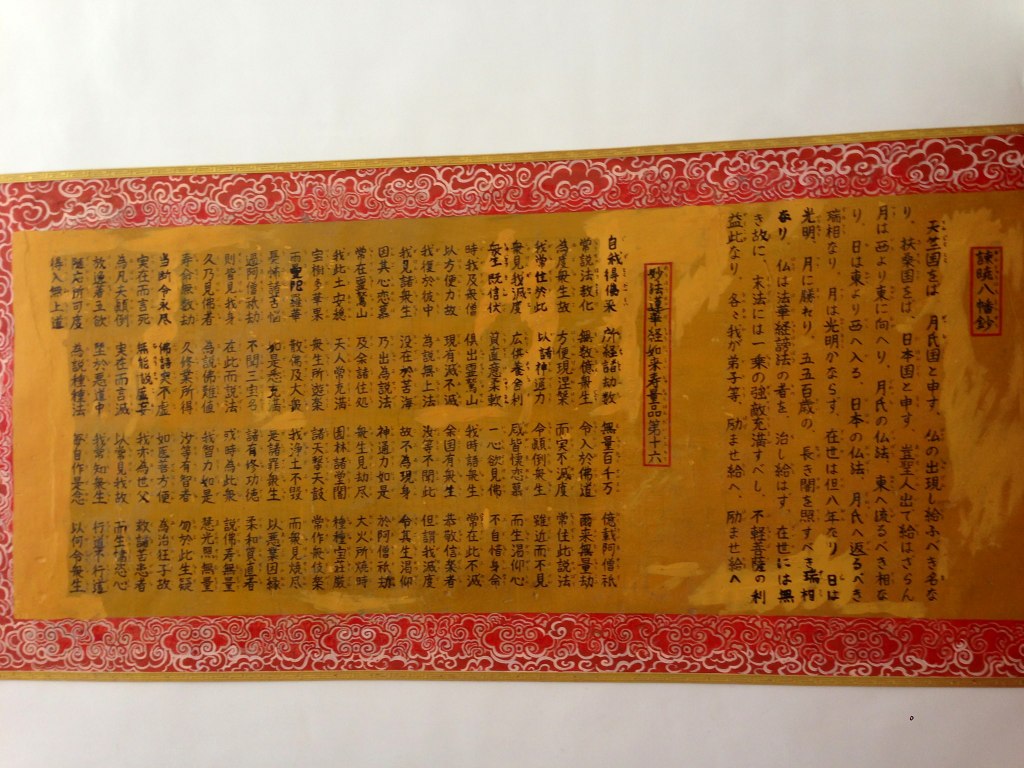 諫暁八幡鈔
天竺国をは 月氏国と申す 仏の出現し給ふへき名な
り、扶桑国とは、日本国と申す、豈聖人出て給はさらん
月は西より東に向へり、月氏の仏法 東へ流るへき相な
り、日は東より西へ入る、日本の仏法、月氏へ返るべき
瑞相なり、月は光明かならす、在世は但八年なり 日は
光明、月に勝れり、五五百歳の、長き闇を照すべき瑞相
なり 仏は法華経謗法の者を 治し給はす、在世には無
き故に、末法には一乗の強敵充満すべし、不軽菩薩の利
益此なり、各々我が弟子等、励ませ給へ、励ませ給へ
妙法蓮華経如来寿量品第十六
自我得佛来 所経諸劫数 無量百千万 億載阿僧祇
常説法教化 無数億衆生 令入於佛道 爾来無量劫
為度衆生故 方便現涅槃 而実不滅度 常住此説法
我常住於此 以諸神通力 令顛倒衆生 雖近而不見
衆見我滅度 広供養舎利 咸皆懐恋慕 而生渇仰心
衆生既信伏 質直意柔軟 一心欲見佛 不自惜身命
時我及衆僧 倶出霊鷲山 我時語衆生 常在此不滅
以方便力故 現有滅不滅 余国有衆生 恭敬信楽者
我復於彼中 為説無上法 汝等不聞此 但謂我滅度
我見諸衆生 没在於苦海 故不為現身 令其生渇仰
因其心恋慕 乃出為説法 神通力如是 於阿僧祇劫
常在霊鷲山 及余諸住処 衆生見劫尽 大火所焼時
我此土安穏 天人常充満 園林諸堂閣 種種宝荘厳
宝樹多華果 衆生所遊楽 諸天撃天鼓 常作衆伎楽
雨曼陀羅華 散佛及大衆 我浄土不毀 而衆見焼尽
憂怖諸苦悩 如是悉充満 是諸罪衆生 以悪業因縁
過阿僧祇劫 不聞三宝名 諸有修功徳 柔和質直者
則皆見我身 在此而説法 或時為此衆 説佛寿無量
久乃見佛者 為説佛難値 我智力如是 慧光照無量
寿命無数劫 久修業所得 汝等有智者 勿於此生疑
当断令永尽 佛語実不虚 如医善方便 為治狂子故
実在而言死 無能説虚妄 我亦為世父 救諸苦患者
為凡夫顛倒 実在而言滅 以常見我故 而生憍恣心
放逸著五欲 堕於悪道中 我常知衆生 行道不行道
随応所可度 為説種種法 毎自作是念 以何令衆生
得入無上道